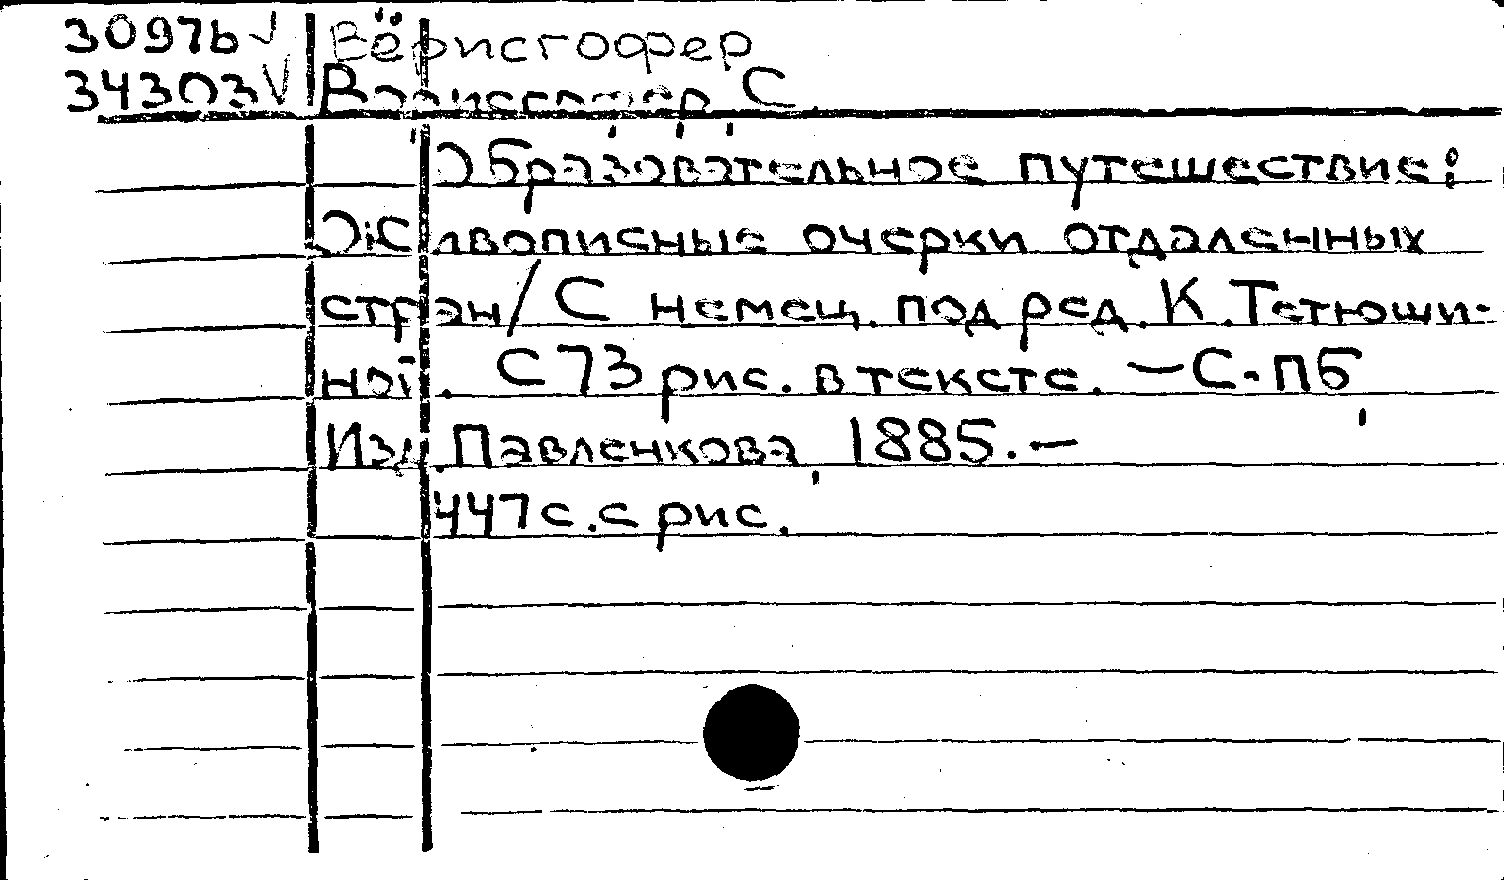 3097b√ Вёрисгофер
34303√ Вэрисгофер С.
Образовательное путешествие:
Живописные очерки отдаленных
стран/ С немец. под ред. К.Тетюши-
ной. С 73 рис. в тексте. — С-пб,
Изд. Павленкова, 1885. —
447 с. с рис.